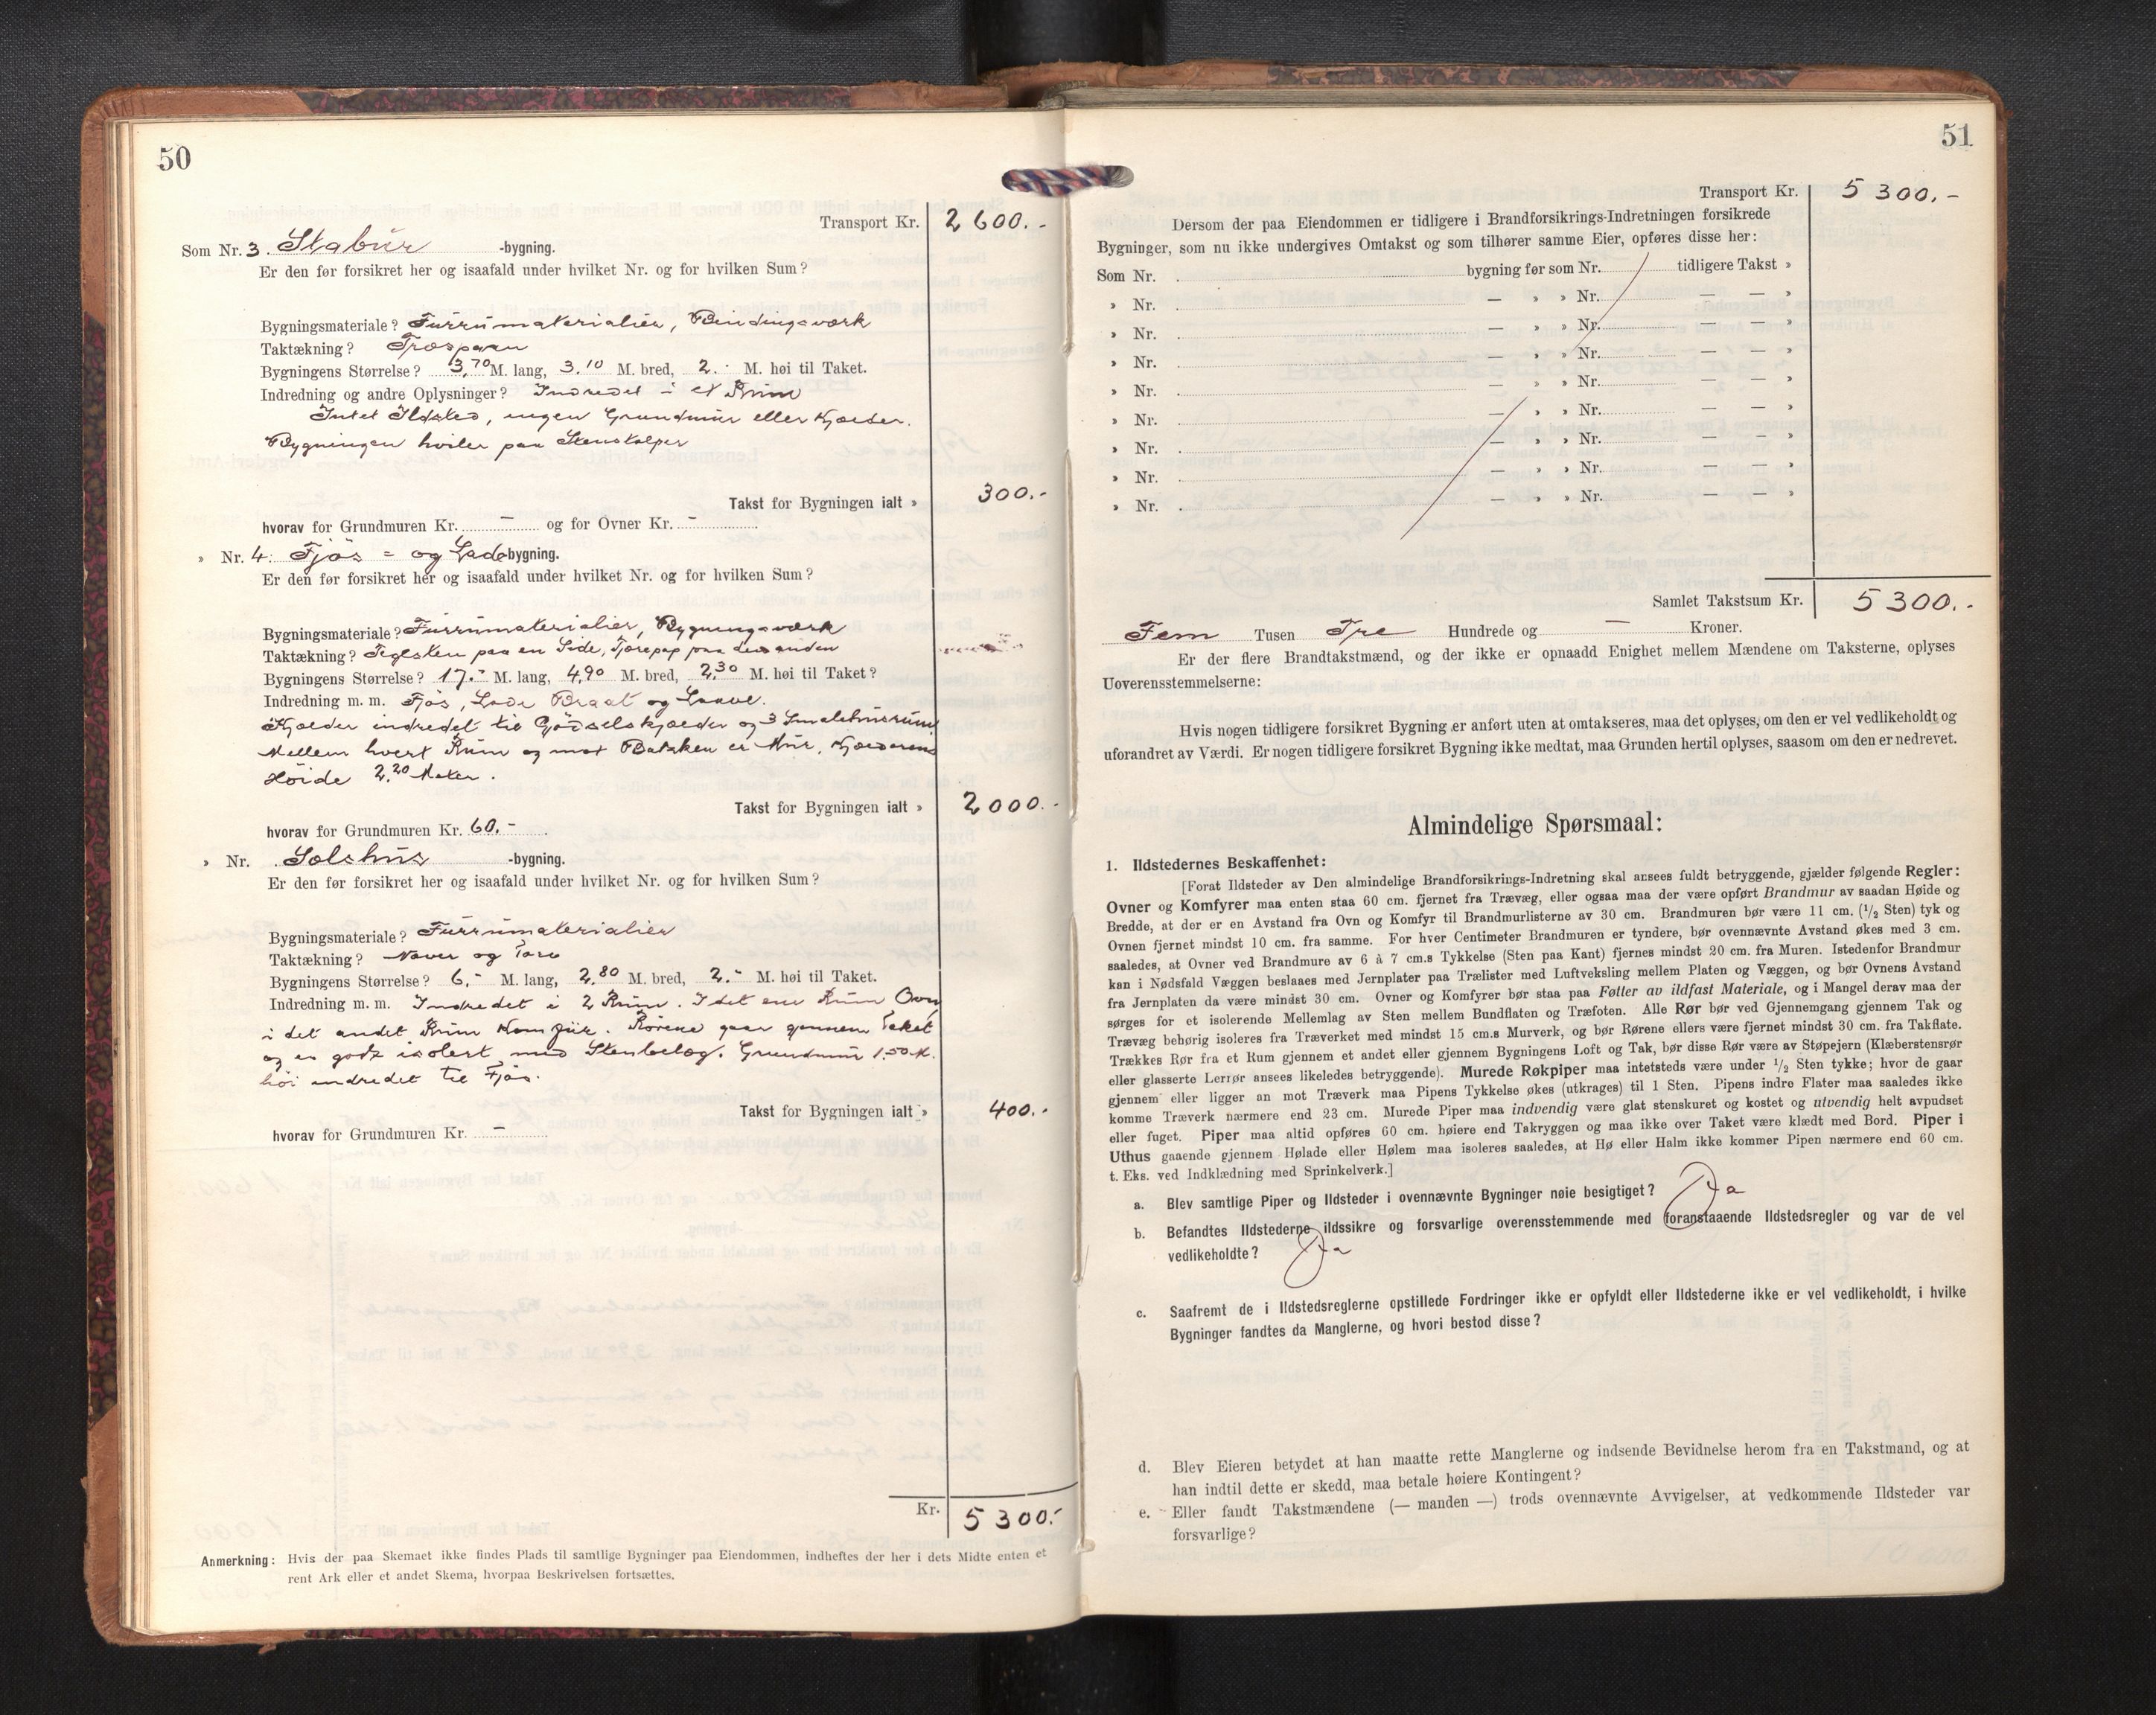 50
Transport Kr. 2 600.-
Som Nr. 3. Stabur -bygning.
Er den før forsikret her og isaafald under hvilket Nr. og for hvilken Sum?
Bygningsmateriale? Furrumaterialier, Bindingsværk
Taktækning? Træspaan
Bygningens Størrelse? 3,70 M. lang, 3.10 M. bred, 2.- M. høi til Taket.
Indredning og andre Oplysninger? Indredet i et Rum
Intet Ildsted, ingen Grundmur eller Kjælder.
Bygningen hviler paa Stenstolper
Takst for Bygningen ialt » 300.-
hvorav for Grundmuren Kr. — og for Ovner Kr. -
» Nr. 4. Fjøs - og Lade-bygning.
Er den før forsikret her og isaafald under hvilket Nr. og for hvilken Sum?
Bygningsmateriale? Furrumaterialier, Bygningsværk
Taktækning? Teglsten paa en Side, Tjærepap paa den anden
Bygningens Størrelse? 17.- M. lang, 4,90 M. bred, 2,30 M. høi til Taket?
Indredning m. m. Fjøs, Lade og Laave.
Kjælder indredet til Gjødselskjælder og 3 Smalehusrum
Mellem hvert Rum og mot Bakken er Mur, Kjælderens
Høide 2,20 Meter.
Takst for Bygningen ialt » 2000.-
hvorav for Grundmuren Kr. 60.-
» Nr. Selshus -bygning.
Er den før forsikret her og isaafald under hvilket Nr. og for hvilken Sum?
Bygningsmateriale? Furrumaterialier
Taktækning? Næver og Torv
Bygningens Størrelse? 6,- M. lang, 2,80 M. bred, 2.- M. høi til Taket.
Indredning m. m. Indredet i 2 Rum. I det ene Rum Ovn
i det andet Rum Komfur. Rørene gaar gjennem Taket
og er godt isolert med Stenbelæg. Grundmur 1,50 M.
høi indredet til Fjøs.
Takst for Bygningen ialt » 400.-
hvorav for Grundmuren Kr. —
Kr. 5 300.-
Anmerkning: Hvis der paa Skemaet ikke findes Plads til samtlige Bygninger paa Eiendommen, indheftes der her i dets Midte enten et
rent Ark eller et andet Skema, hvorpaa Beskrivelsen fortsættes.
51
Transport Kr. 5 300.-
Dersom der paa Eiendommen er tidligere i Brandforsikrings-Indretningen forsikrede
Bygninger, som nu ikke undergives Omtakst og som tilhører samme Eier, opføres disse her:
Som Nr. bygning før som Nr. tidligere Takst »
» Nr. — » » Nr. — — »
» Nr. — » » Nr. — — »
» Nr. — » » Nr. — — »
» Nr. — » » Nr. — — »
» Nr. — » » Nr. — — »
» Nr. — » » Nr. — — »
» Nr. — » » Nr. — — »
» Nr. — » » Nr. — — »
Samlet Takstsum Kr. 5 300.-
Fem Tusen Tre Hundrede og — Kroner.
Er der flere Brandtakstmænd, og der ikke er opnaadd Enighet mellem Mændene om Taksterne, oplyses
Uoverensstemmelserne:
Hvis nogen tidligere forsikret Bygning er anført uten at omtakseres, maa det oplyses, om den er vel vedlikeholdt og
uforandret av Værdi. Er nogen tidligere forsikret Bygning ikke medtat, maa Grunden hertil oplyses, saasom om den er nedrevet.
Almindelige Spørsmaal:
1. Ildstedernes Beskaffenhet:
[Forat Ildsteder av Den almindelige Brandforsikrings-Indretning skal ansees fuldt betryggende, gjælder følgende Regler:
Ovner og Komfyrer maa enten staa 60 cm. fjernet fra Trævæg, eller ogsaa maa der være opført Brandmur av saadan Høide og
Bredde, at der er en Avstand fra Ovn og Komfyr til Brandmurlisterne av 30 cm. Brandmuren bør være 11 cm. (1/2 Sten) tyk og
Ovnen fjernet mindst 10 cm. fra samme. For hver Centimeter Brandmuren er tyndere, bør ovennævnte Avstand økes med 3 cm.
saaledes, at Ovner ved Brandmure av 6 à 7 cm.s Tykkelse (Sten paa Kant) fjernes mindst 20 cm. fra Muren. Istedenfor Brandmur
kan i Nødsfald Væggen beslaaes med Jernplater paa Trælister med Luftveksling mellem Platen og Væggen, og bør Ovnens Avstand
fra Jernplaten da være mindst 30 cm. Ovner og Komfyrer bør staa paa Føtter av ildfast Materiale, og i Mangel derav maa der
sørges for et isolerende Mellemlag av Sten mellem Bundflaten og Træfoten. Alle Rør bør ved Gjennemgang gjennem Tak og
Trævæg behørig isoleres fra Træverket med mindst 15 cm.s Murverk, og bør Rørene ellers være fjernet mindst 30 cm. fra Takflate.
Trækkes Rør fra et Rum gjennem et andet eller gjennem Bygningens Loft og Tak, bør disse Rør være av Støpejern (Klæberstensrør
eller glasserte Lerrør ansees likeledes betryggende). Murede Røkpiper maa intetsteds være under 1/2 Sten tykke; hvor de gaar
gjennem eller ligger an mot Træverk maa Pipens Tykkelse økes (utkrages) til 1 Sten. Pipens indre Flater maa saaledes ikke
komme Træverk nærmere end 23 cm. Murede Piper maa indvendig være glat stenskuret og kostet og utvendig helt avpudset
eller fuget. Piper maa altid opføres 60 cm. høiere end Takryggen og maa ikke over Taket være klædt med Bord. Piper i
Uthus gaaende gjennem Hølade eller Hølem maa isoleres saaledes, at Hø eller Halm ikke kommer Pipen nærmere end 60 cm.
t. Eks. ved Indklædning med Sprinkelverk.]
a. Blev samtlige Piper og Ildsteder i ovennævnte Bygninger nøie besigtiget? Ja
b. Befandtes Ildstederne ildssikre og forsvarlige overensstemmende med foranstaaende Ildstedsregler og var de vel
vedlikeholdte? Ja
c. Saafremt de i Ildstedsreglerne opstillede Fordringer ikke er opfyldt eller Ildstederne ikke er vel vedlikeholdt, i hvilke
Bygninger fandtes da Manglerne, og hvori bestod disse?
d. Blev Eieren betydet at han maatte rette Manglerne og indsende Bevidnelse herom fra en Takstmand, og at
han indtil dette er skedd, maa betale høiere Kontingent?
e. Eller fandt Takstmændene (— manden —) trods ovennævnte Avvigelser, at vedkommende Ildsteder var
forsvarlige?